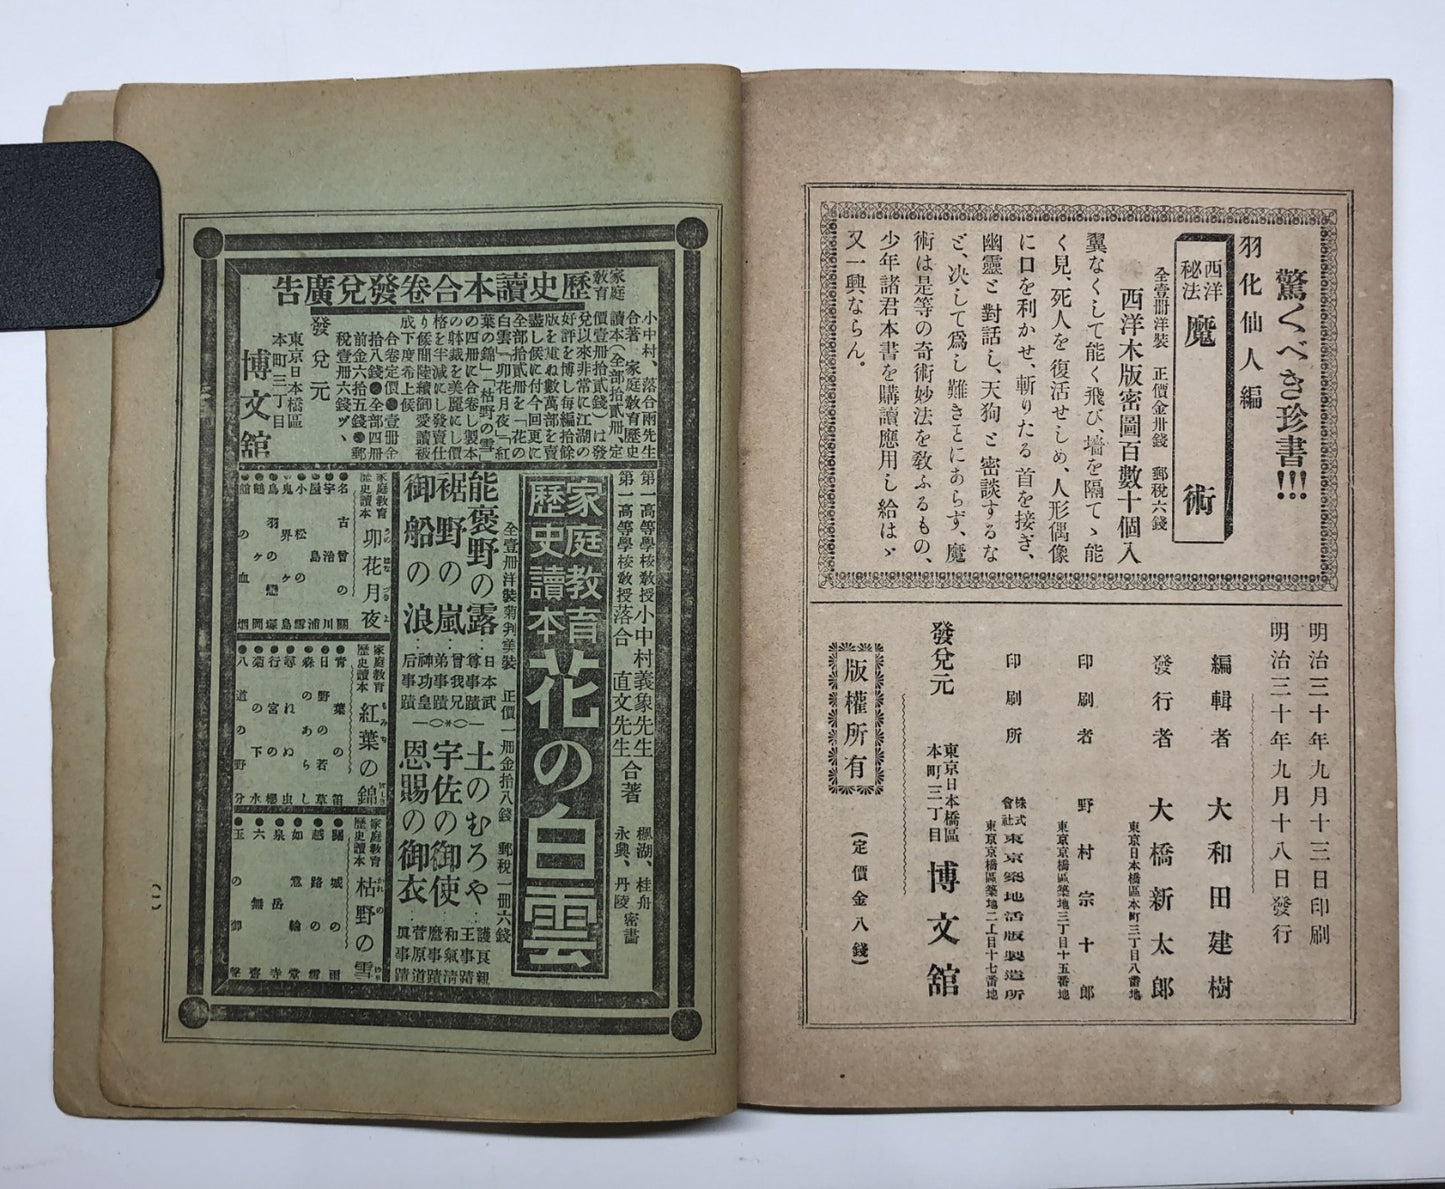 驚くべき珍書!!!
羽化仙人編
西洋秘法 魔術
全壹冊洋裝 正價金卅錢 郵稅六錢
西洋木版密圖百數十個入
翼なくして能く飛び、墻を隔てゝ能
く見、死人を復活せしめ、人形偶像
に口を利かせ、斬りたる首を接ぎ、
幽靈と對話し、天狗と密談するな
ど、决して爲し難きことにあらず、魔
術は是等の奇術妙法を敎ふるもの、
少年諸君本書を購讀應用し給はゞ
又一興ならん。
明治三十年九月十三日印刷
明治三十年九月十八日發行
編輯者 大和田建樹
發行者 大橋新太郎
東京日本橋區本町三丁目八番地
印刷者 野村宗十郎
東京京橋區築地三丁目十五番地
印刷所 株式會社東京築地活版製造所
東京京橋區築地二丁目十七番地
發兌元 東京日本橋區本町三丁目 博文舘
版權所有
(定價金八錢)
家庭敎育歷史讀本合卷發兌廣告
小中村、落合兩先生
合著 家庭敎育歷史
讀本(全部拾貳冊、定
價壹冊拾貳錢)は發
兌以來非常に江湖の
好評を博し每編拾餘
版を重ね數萬部を賣
盡し候に付今回更に
全部拾貳冊を「花の
白雲」「卯花月夜」「紅
葉の錦」「枯野の雪」
の四冊に合卷し製本
の躰裁を美麗にし價
格を半減にし發賣仕
り候間陸續御愛讀被
成下度希上候
合卷定價●壹冊金
拾八錢●全部四冊
前金六拾五錢●郵
稅壹冊六錢ヅヽ
發兌元
東京日本橋區
本町三丁目
博文舘
第一高等學校敎授小中村義象先生
第一高等學校敎授落合直文先生 合著
楓湖、桂舟
永興、丹陵 密畫
家庭敎育歷史讀本 花の白雲
全壹冊洋裝菊判美裝 正價一冊金拾八錢 郵稅一冊六錢
能褒野の露 日本武尊事蹟
裾野の嵐 曾我兄弟事蹟
御船の浪 神功皇后事蹟
土のむろや 護良親王事蹟
宇佐の御使 和氣淸麿事蹟
恩賜の御衣 菅原道眞事蹟
家庭敎育歷史讀本 卯花月夜
うのはなづきよ
●名古曾の關
●宇治川
●屋島浦
●小松の雪
●鬼界ヶ島
●鳥羽の戀塚
家庭敎育歷史讀本 紅葉の錦
もみぢ にしき
●靑葉の笛
●日野の若草
●森のあらし
●尋れぬ虫
●行宮の櫻
●菊の下水
●八道の野分
家庭敎育歷史讀本 枯野の雪
かれの ゆき
●越路の雪
●如意輪堂